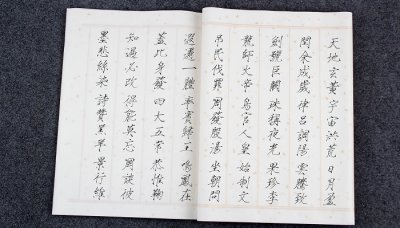 天地玄黃宇宙洪荒日月盈
閏余成歲律呂調陽雲騰致
劍號巨闕珠稱夜光果珍李
龍師火帝鳥官人皇始制文
吊民伐罪周發殷湯坐朝問
遐邇一體率賓歸王鳴鳳在
蓋此身發四大五常恭惟鞠
知過必改得能莫忘罔談彼
墨悲絲染詩贊羔羊景行維